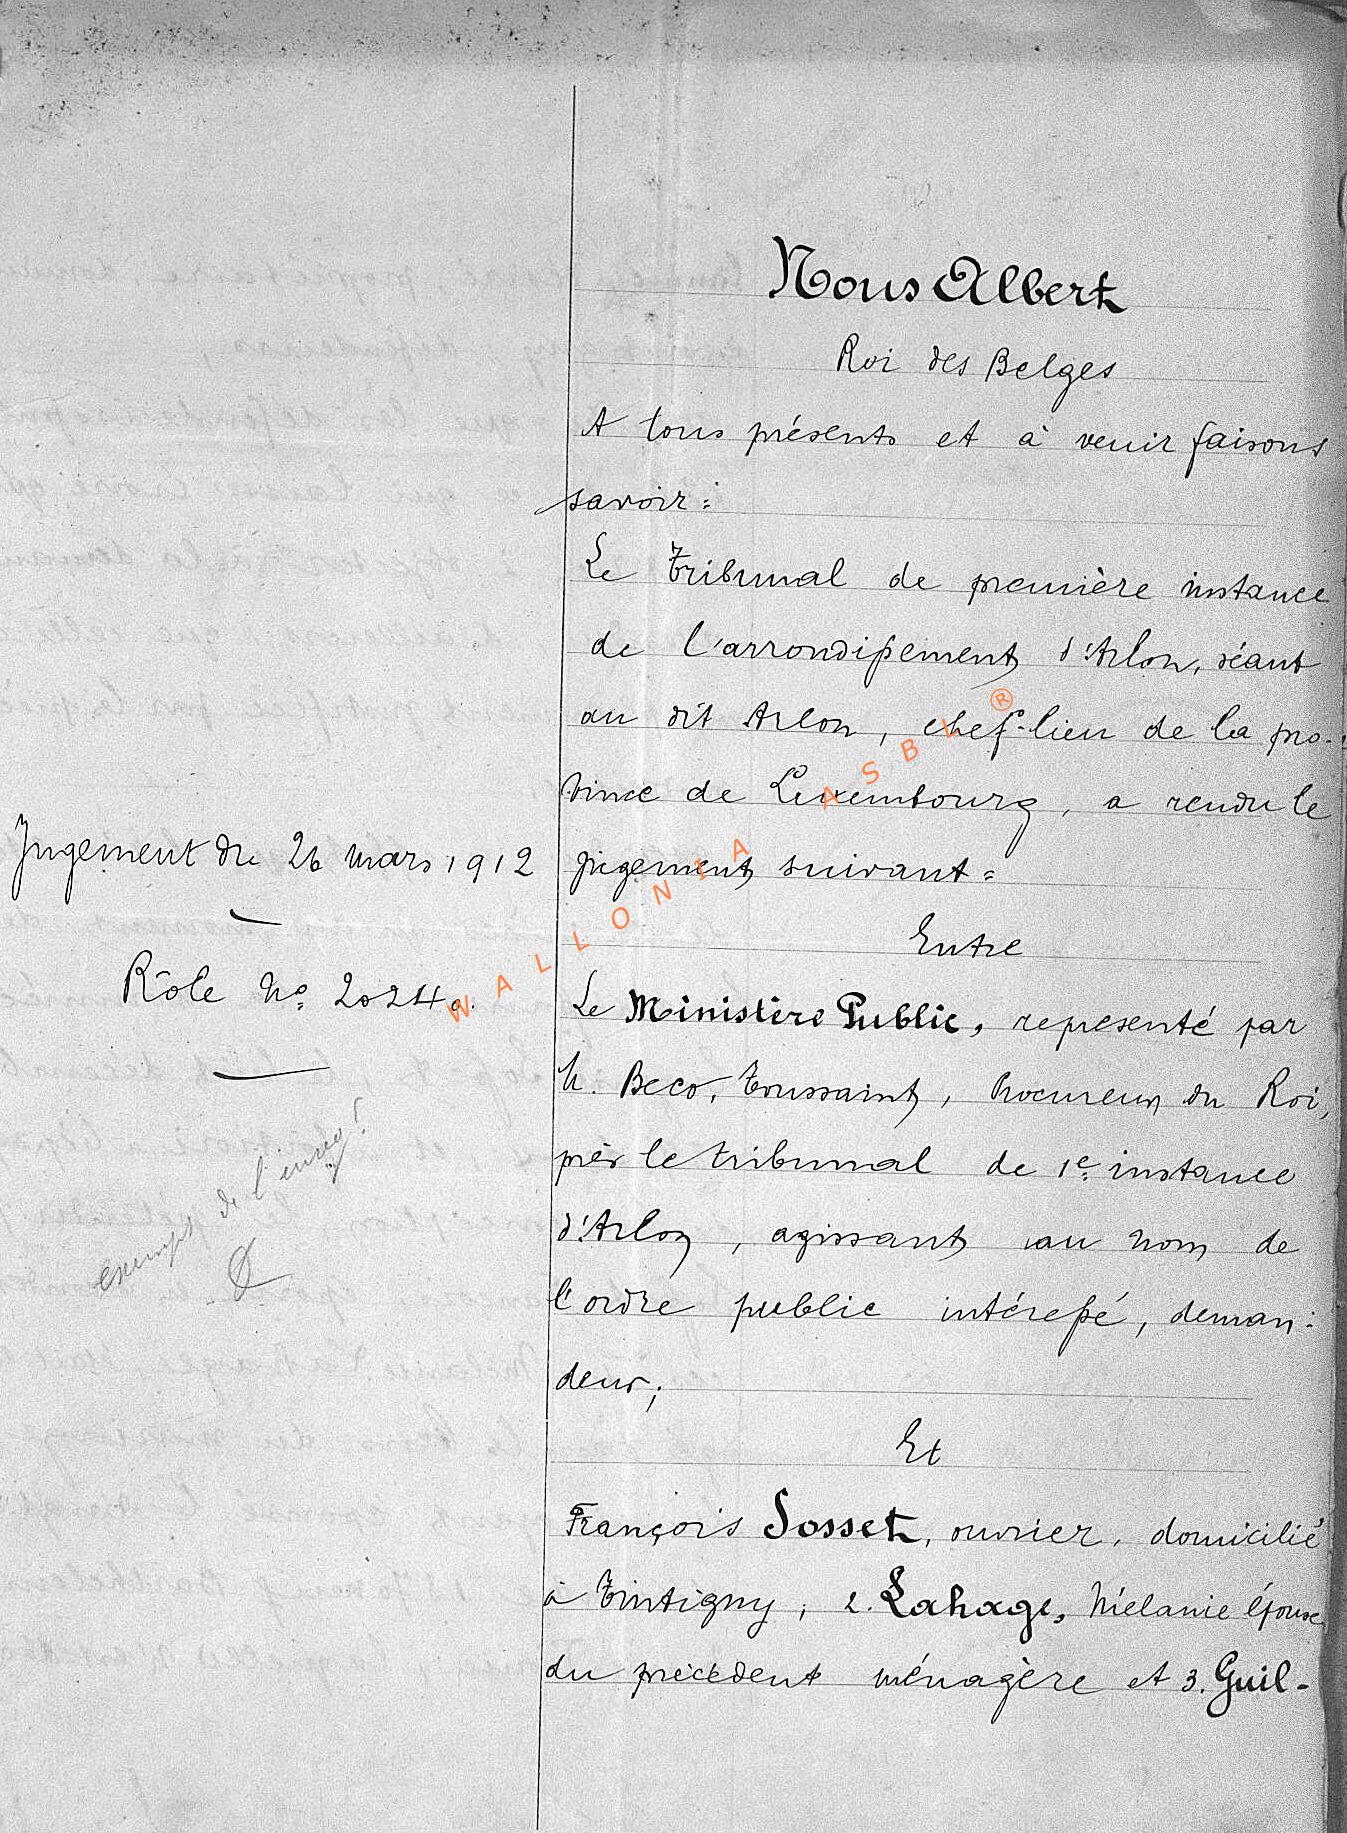 Nous Albert
Roi des Belges
A tous présents et à venir faisons
savoir :
Le Tribunal de première instance
de l'arrondissement d'Arlon, séant
au dit Arlon, chef-lieu de la pro-
vince de Luxembourg, a rendu le
jugement suivant :
Jugement du 26 mars 1912
Rôle No 2024.
exempt de l'enreg!
Entre
Le Ministère Public, représenté par
M. Beco, Toussaint, Procureur du Roi,
près le tribunal de 1e instance
d'Arlon, agissant au nom de
l'ordre public intéressé, deman-
deur;
Et
François Sosset, ouvrier, domicilié
à Tintigny; 2. Lahage, Mélanie épouse
du précédent ménagère et 3. Guil-
WALLONIA ASBL ®